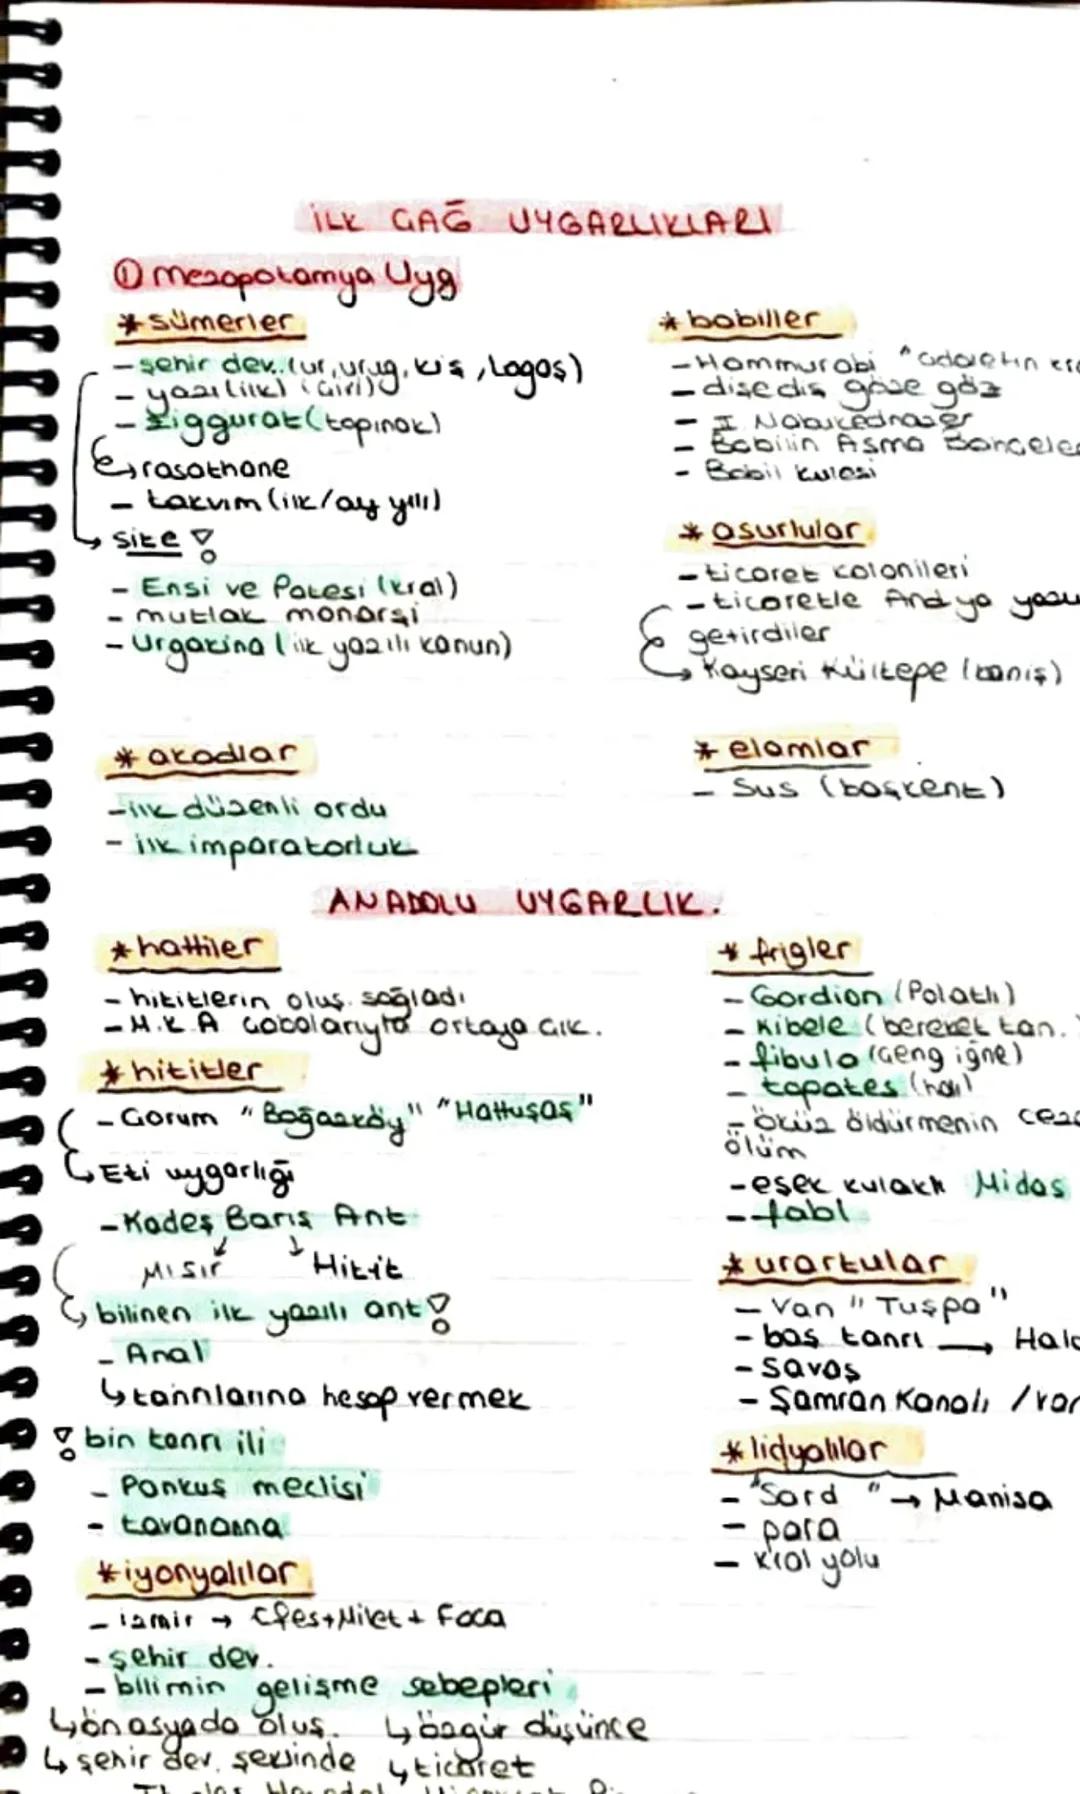 İLK ÇAĞ UYGARLIKLARI
① Mezopotamya Uyg
* sümerler
- şehir dev. (ur, urug, kiş, Lagoş)
- yazı (ilk) (Çivi)
- Ziggurat (tapınak)
↳ rasathane
- takvim (ilk/ay yılı)
↳ site !
- Ensi ve Patesi (kral)
- mutlak monarşi
- Urgakina (ilk yazılı kanun)
* akadlar
- ilk düzenli ordu
- ilk imparatorluk
* babiller
- Hammurabi "adaletin
- dişe diş göze göz
- I. Nabukednazer
- Babilin Asma Bahçeler
- Babil kulesi
* asurlular
- ticaret kolonileri
- ticaretle And ya yazı
getirdiler
↳ Kayseri Kültepe (kaniş)
* elamlar
- Sus (başkent)
ANADOLU UYGARLIK.
* hattiler
- hititlerin oluş. sağladı
- M.K.A çabalarıyla ortaya çık.
* hititler
- Çorum "Boğazköy" "Hattuşaş"
↳ Eti uygarlığı
- Kadeş Barış Ant
Mısır Hitit
↳ bilinen ilk yazılı ant !
- Anal
↳ tanrılarına hesap vermek
! bin tanrı ili
- Pankuş meclisi
- tavananna
* iyonyalılar
- izmir → Efes + Milet + Foça
- şehir dev.
- bilimin gelişme sebepleri
↳ ön asyada oluş. ↳ özgür düşünce
↳ şehir dev. şeklinde ↳ ticaret
* frigler
- Gordion (Polatlı)
- Kibele (bereket tan.
- fibula (Çeng iğne)
- tapates (halı)
- öküz öldürmenin ceza
ölüm
- eşek kulaklı Midas
- fabl
* urartular
- Van "Tuşpa"
- baş tanrı → Hald
- savaş
- Şamran Kanalı /
* lidyalılar
- "Sard" → Manisa
- para
- kral yolu